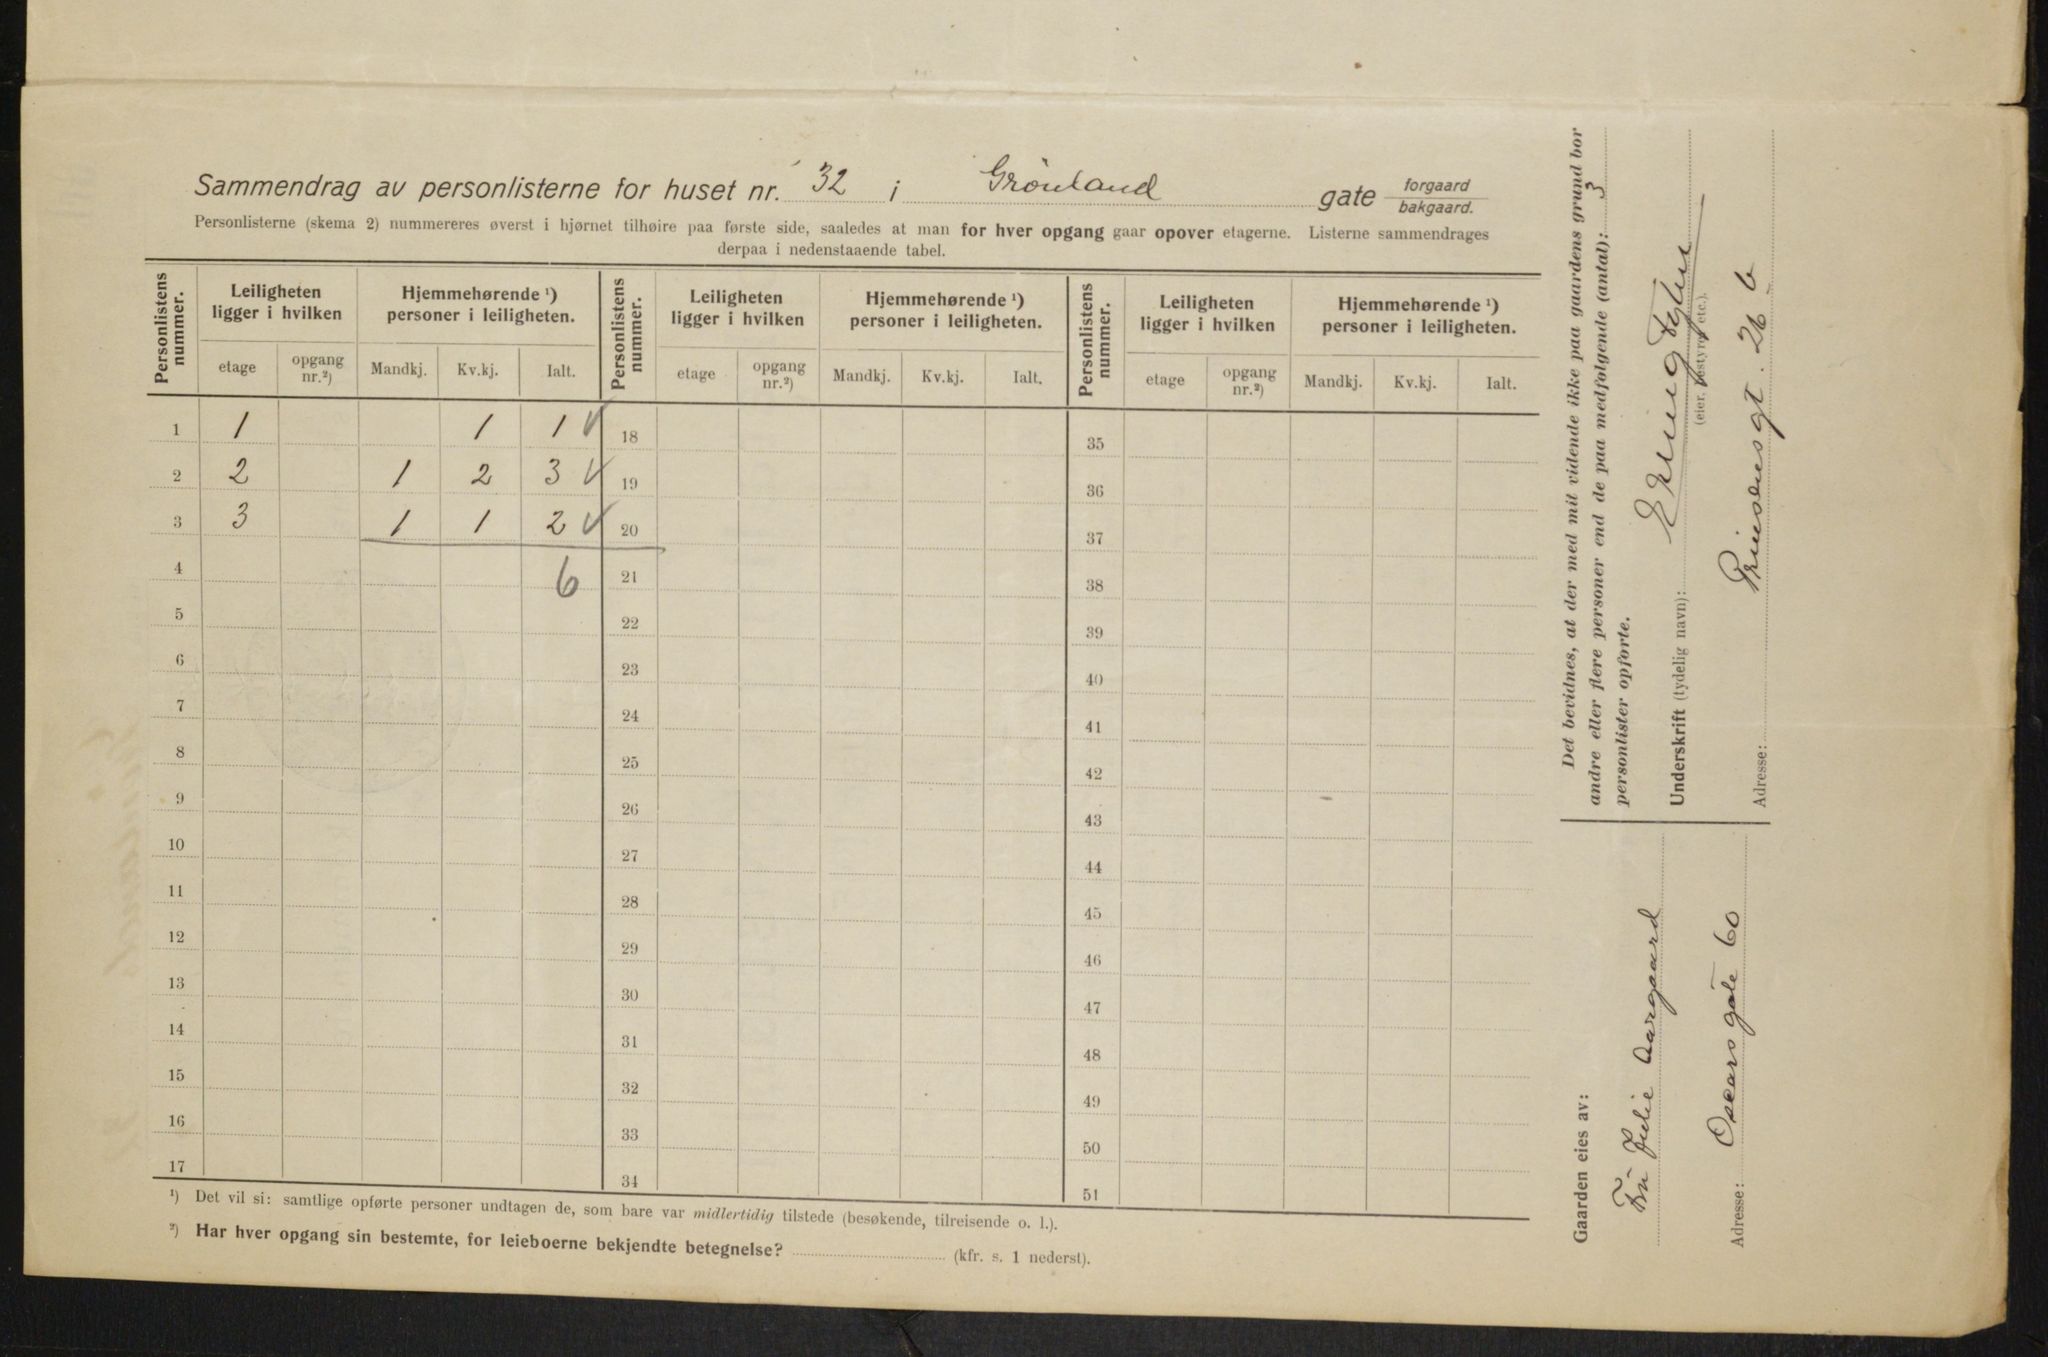 Sammendrag av personlisterne for huset nr. 32 i Grönland gate forgaard
bakgaard.
Personlisterne (skema 2) nummereres øverst i hjørnet tilhøire paa første side, saaledes at man for hver opgang gaar opover etagerne. Listerne sammendrages
derpaa i nedenstaaende tabel.
Personlistens nummer. Leiligheten ligger i hvilken Hjemmehørende ¹) personer i leiligheten. Personlistens nummer. Leiligheten ligger i hvilken Hjemmehørende ¹) personer i leiligheten. Personlistens nummer. Leiligheten ligger i hvilken Hjemmehørende ¹) personer i leiligheten.
etage opgang nr.²) Mandkj. Kv.kj. Ialt. etage opgang nr.²) Mandkj. Kv.kj. Ialt. etage opgang nr.²) Mandkj. Kv.kj. Ialt.
1 1 1 1 18 35
2 2 1 2 3 19 36
3 3 1 1 2 20 37
4 6 21 38
5 22 39
6 23 40
7 24 41
8 25 42
9 26 43
10 27 44
11 28 45
12 29 46
13 30 47
14 31 48
15 32 49
16 33 50
17 34 51
¹) Det vil si: samtlige opførte personer undtagen de, som bare var midlertidig tilstede (besøkende, tilreisende o. l.).
²) Har hver opgang sin bestemte, for leieboerne bekjendte betegnelse? (kfr. s. 1 nederst).
Det bevidnes, at der med mit vidende ikke paa gaardens grund bor
andre eller flere personer end de paa medfølgende (antal): 3
personlister opførte.
Underskrift (tydelig navn):
(eier, bestyrer etc.).
Adresse: Prinsensgt. 26 b
Gaarden eies av:
Fru Julie Aargaard
Adresse: Oscars gate 60